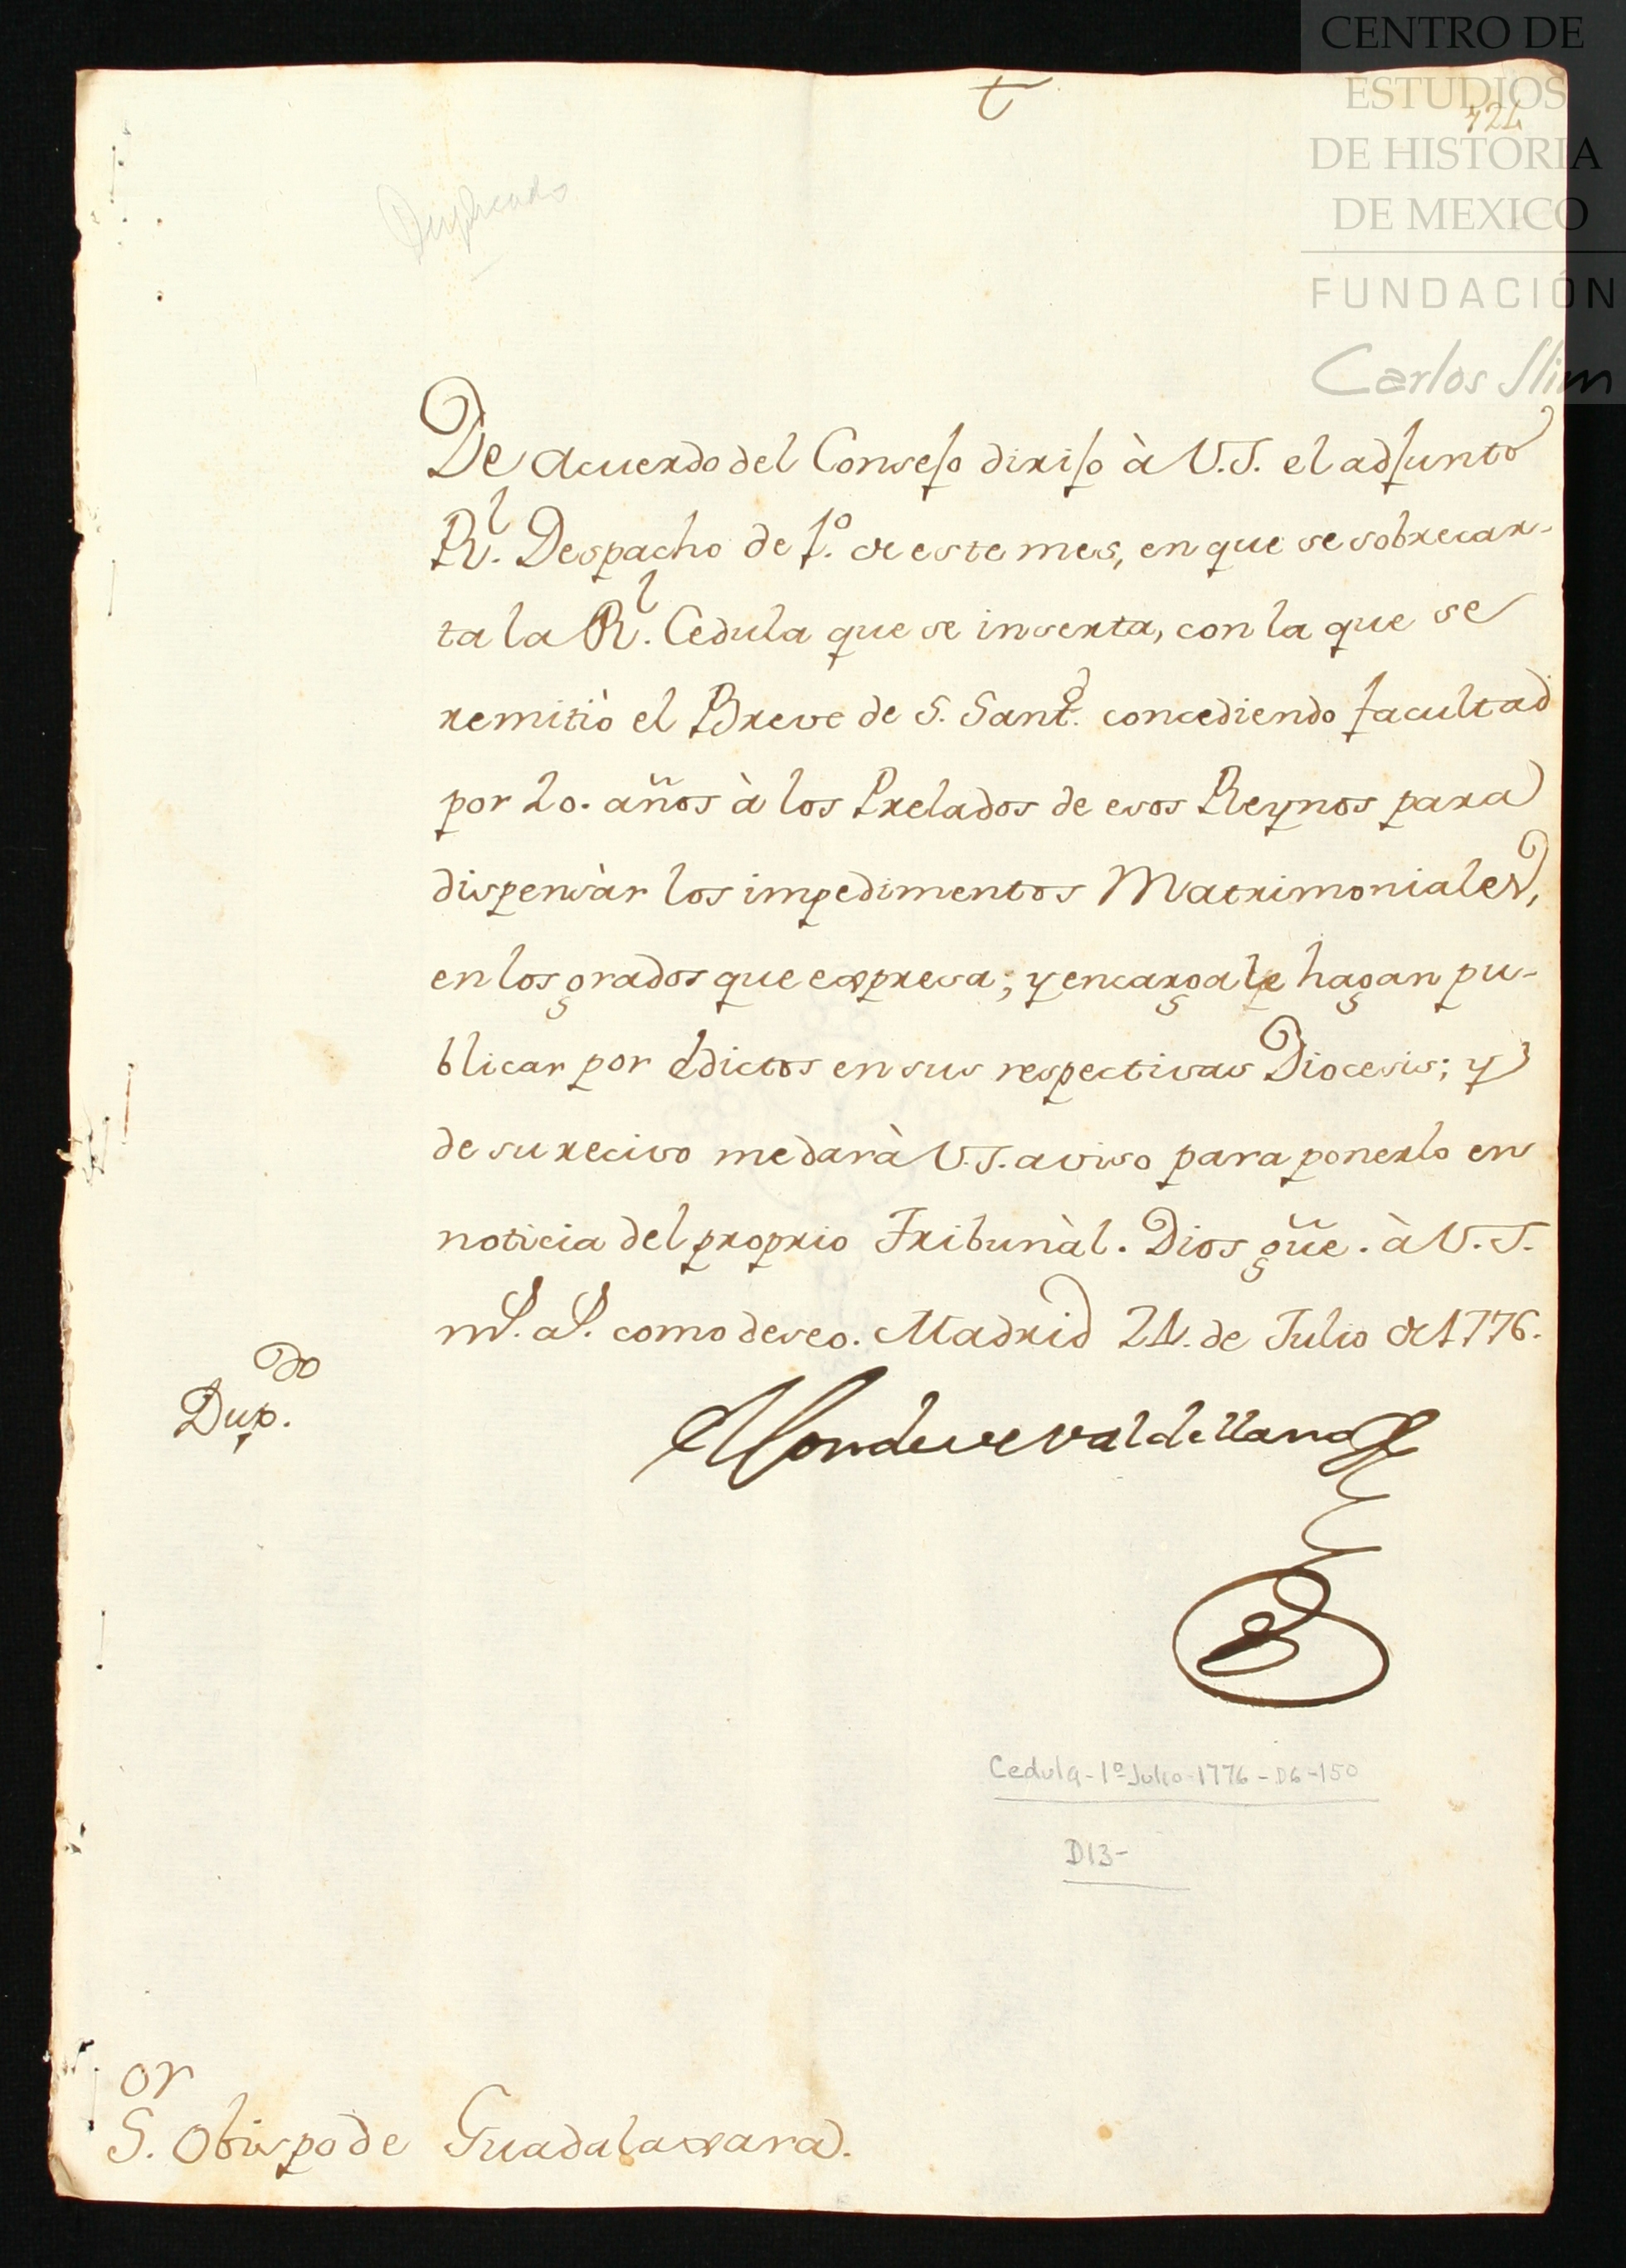 CENTRO DE
ESTUDIOS
DE HISTORIA
DE MEXICO
FUNDACIÓN
Carlos Slim
724
Duplicado
De acuerdo del Consejo dirijo à V.S. el adjunto
Rl. Despacho de 1º. de este mes, en que se sobrecar-
ta la Rl. Cedula que se inserta, con la que se
remitiò el Breve de S. Santd. concediendo facultad
por 20. años à los Prelados de esos Reynos para
dispensàr los impedimentos Matrimoniales,
en los grados que expresa; y encarga le hagan pu-
blicar por Edictos en sus respectivas Diocesis; y
de su recivo me darà V.S. aviso para ponerlo en
noticia del proprio Tribunàl. Dios güe. à V.S.
ms. as. como deseo. Madrid 21. de Julio de 1776.
Dupdo.
El Conde de Valdellano
Cedula-1º Julio-1776-D6-150
D13-
Sor. Obispo de Guadalaxara.